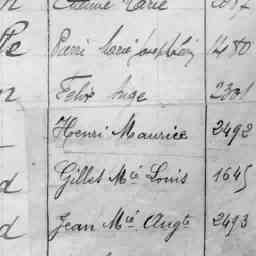 Etienne Marie
Pierre Marie Joseph 1480
Felix Ange 2301
Henri Maurice 2492
Gilles Mie Louis 1645
d Jean Mie Augte 2493